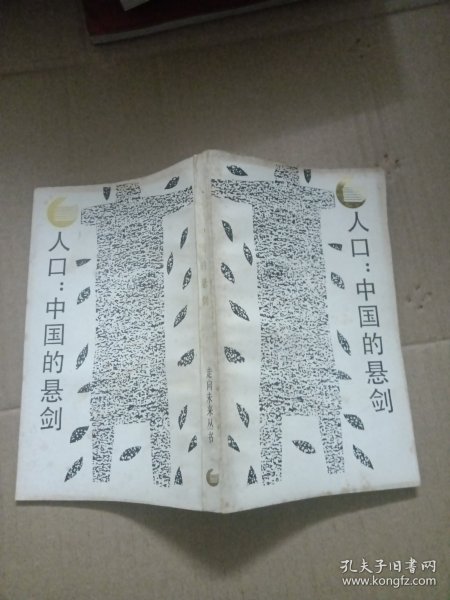 人口：中国的悬剑
走向未来丛书
人口：中国的悬剑
孔夫子旧书网
www.kongfz.com